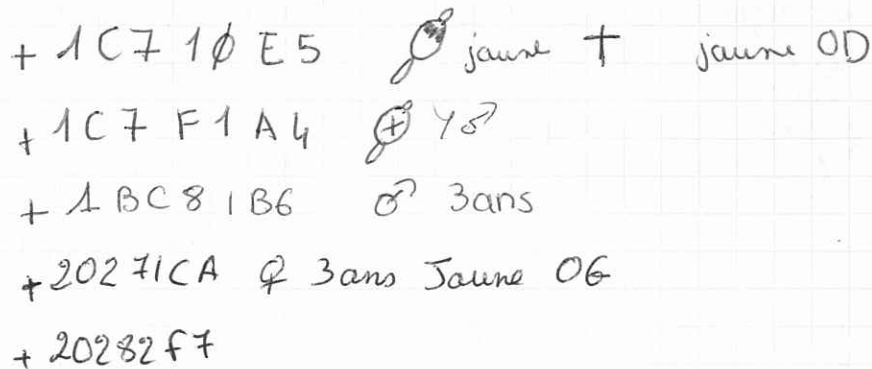 + 1C7 1Ø E5 jaune † jaune OD
+ 1C7 F1A4 Y♂
+ 1BC81B6 ♂ 3ans
+ 20271CA ♀ 3ans Jaune OG
+ 20282f7